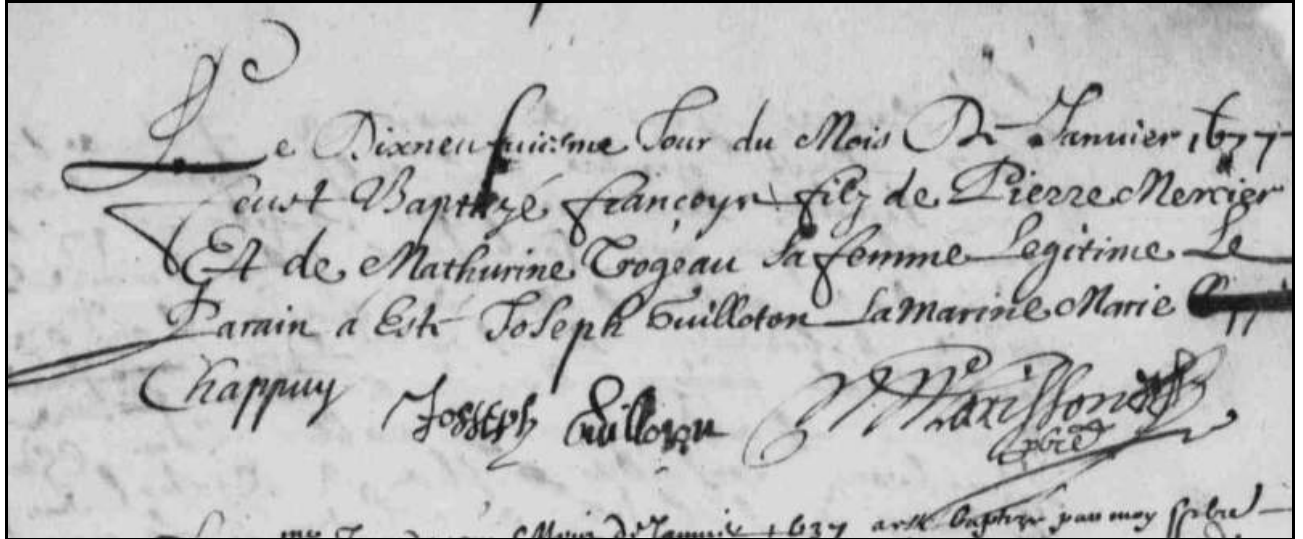 Le Dixneufuiesme Jour du Mois De Janvier 1637
feust Baptizé françoys filz de Pierre Mercier
Et de Mathurine Trogeau sa femme Legitime Le
Parain á Esté Joseph Guilloton La Marine Marie
Chappuy Josseph Guilloton
pbre
Janvier 1637 baptizé par moy